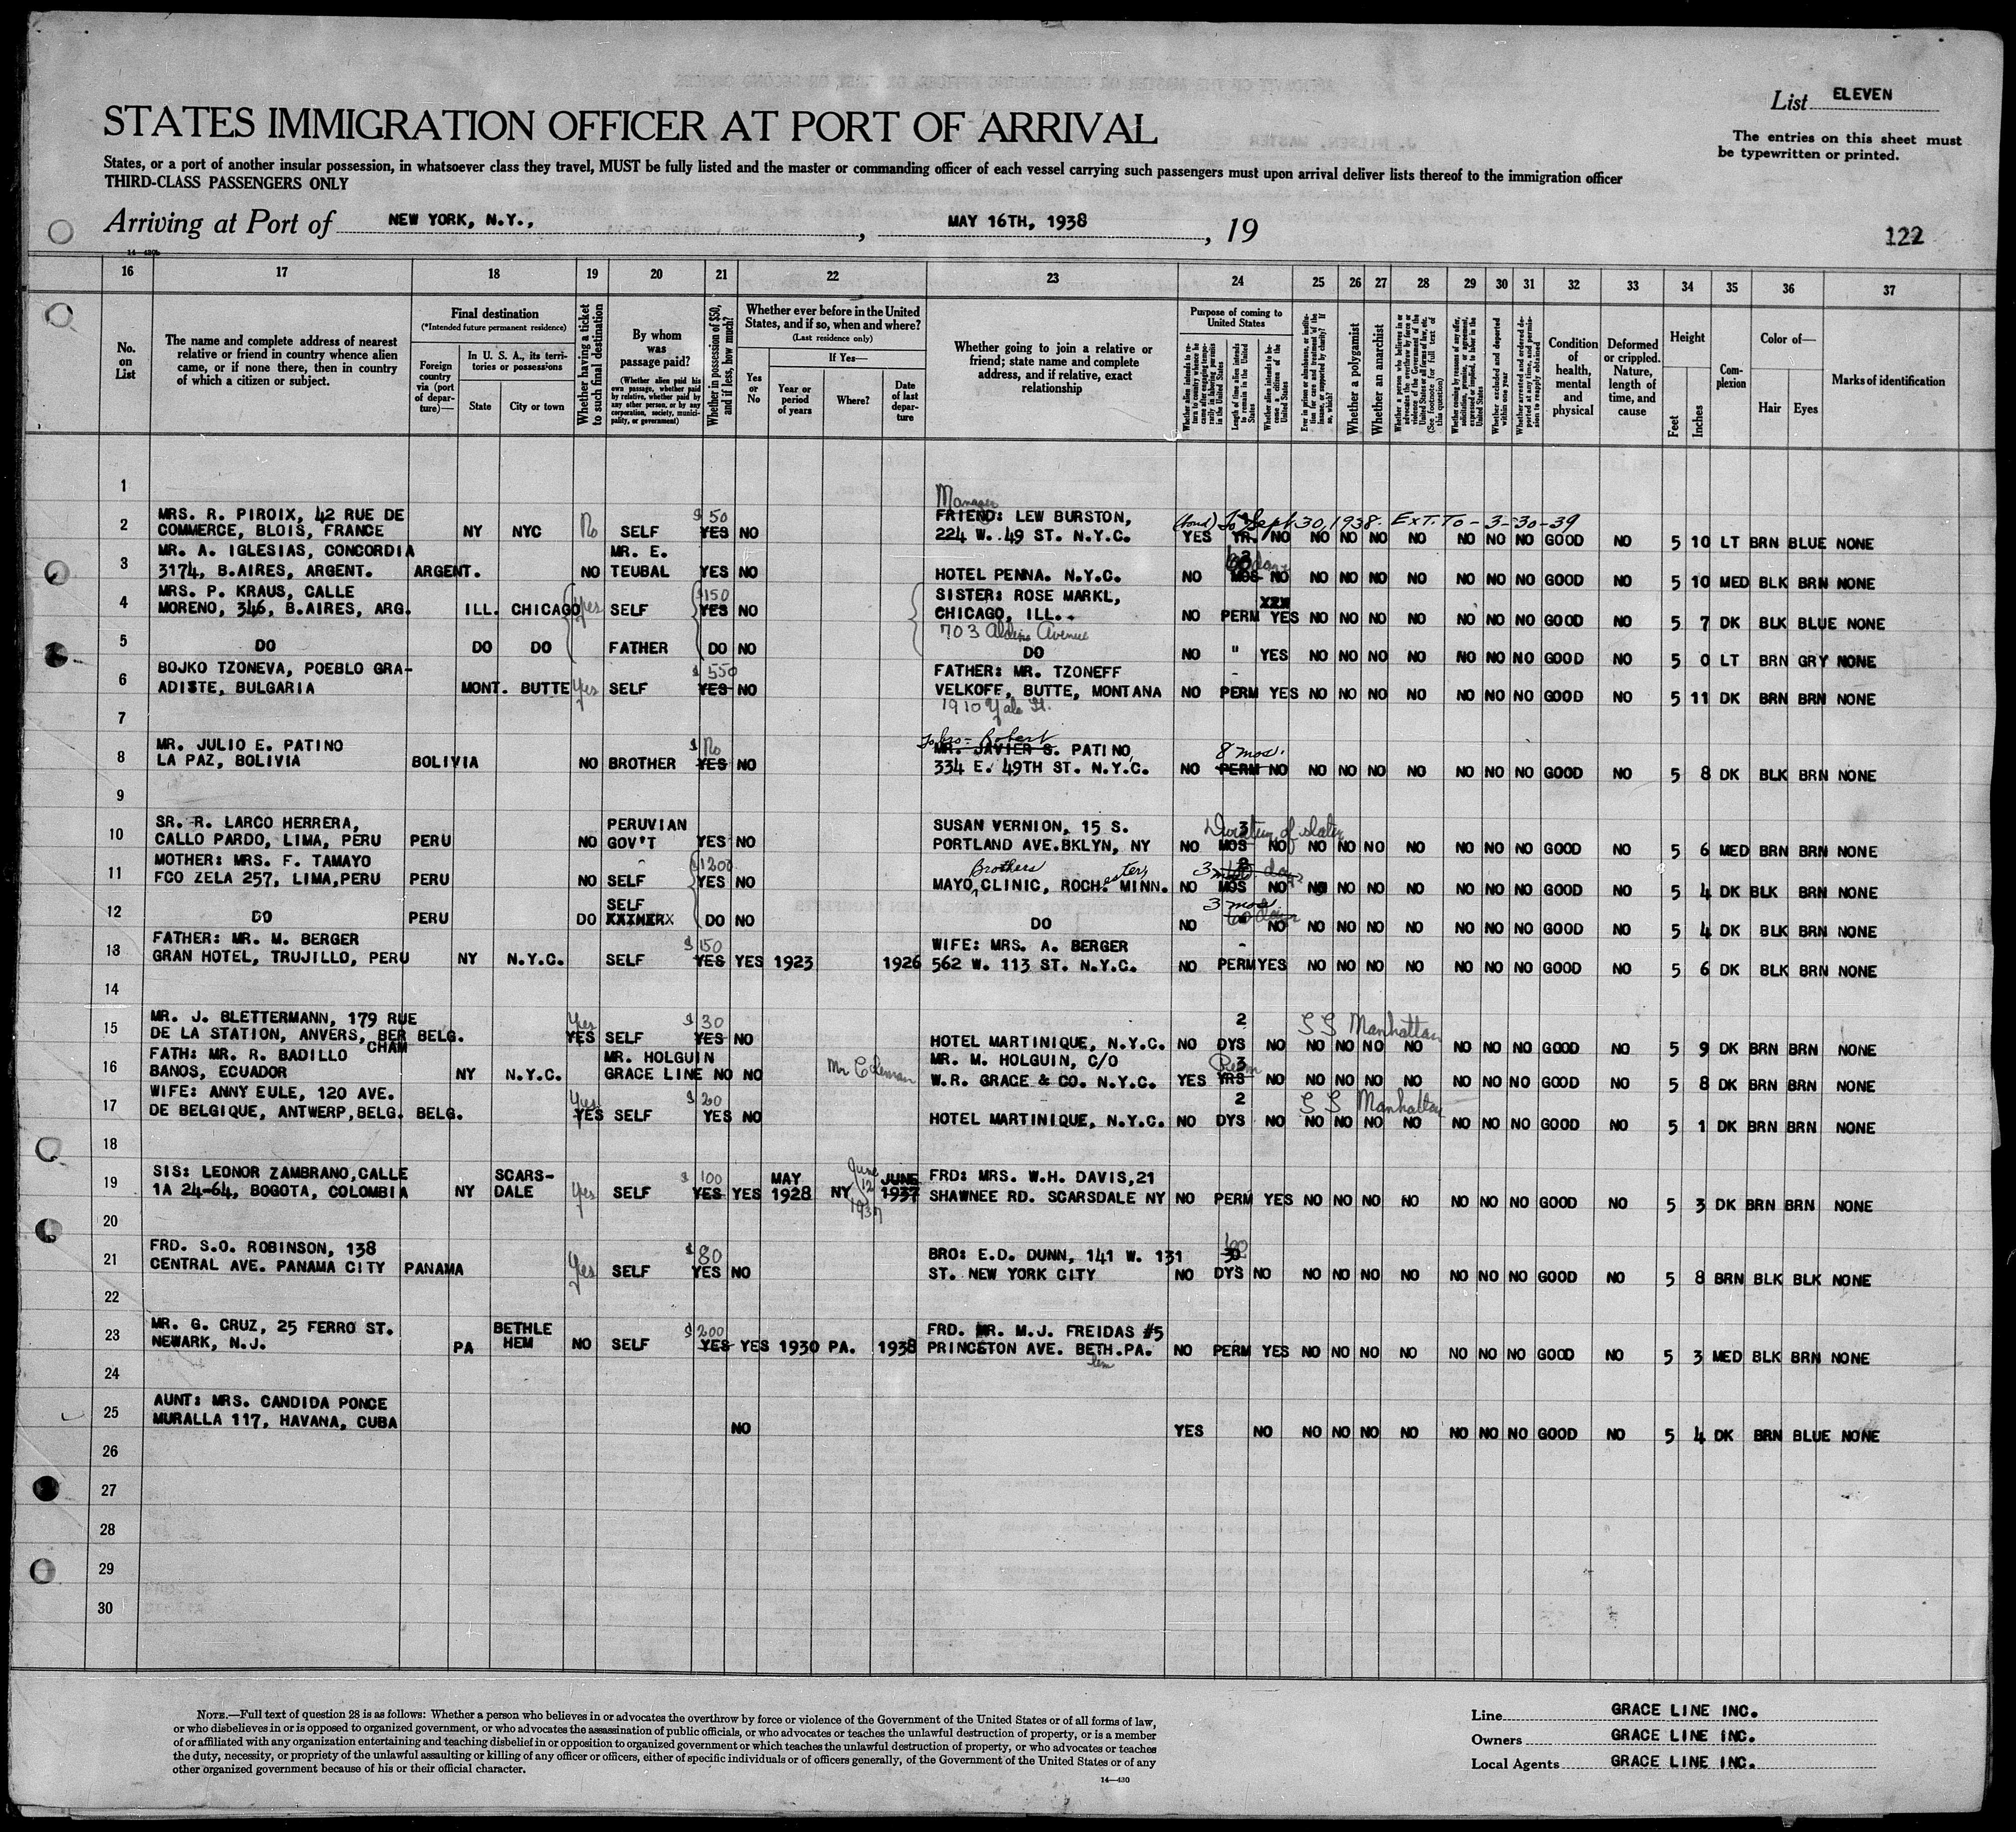 List ELEVEN
STATES IMMIGRATION OFFICER AT PORT OF ARRIVAL
The entries on this sheet must
be typewritten or printed.
States, or a port of another insular possession, in whatsoever class they travel, MUST be fully listed and the master or commanding officer of each vessel carrying such passengers must upon arrival deliver lists thereof to the immigration officer
THIRD-CLASS PASSENGERS ONLY
Arriving at Port of NEW YORK, N.Y., , MAY 16TH, 1938 , 19
122
16 17 18 19 20 21 22 23 24 25 26 27 28 29 30 31 32 33 34 35 36 37
No. on List
The name and complete address of nearest
relative or friend in country whence alien
came, or if none there, then in country
of which a citizen or subject.
Final destination
(*Intended future permanent residence)
Foreign country via (port of departure)—
In U. S. A., its territories or possessions
State City or town
Whether having a ticket to such final destination
By whom was passage paid?
(Whether alien paid his own passage, whether paid by relative, whether paid by any other person, or by any corporation, society, municipality, or government)
Whether in possession of $50, and if less, how much?
Whether ever before in the United
States, and if so, when and where?
(Last residence only)
If Yes—
Yes or No
Year or period of years
Where?
Date of last departure
Whether going to join a relative or
friend; state name and complete
address, and if relative, exact
relationship
Purpose of coming to United States
Length of time alien intends to remain in the United States
Whether alien intends to become a citizen of the United States
Whether a polygamist
Whether an anarchist
Condition of health, mental and physical
Deformed or crippled. Nature, length of time, and cause
Height
Feet Inches
Complexion
Color of—
Hair Eyes
Marks of identification
1
Manager
2 MRS. R. PIROIX, 42 RUE DE $50 FRIEND: LEW BURSTON, (bond) To Sept 30, 1938. EXT. TO - 3-30-39
COMMERCE, BLOIS, FRANCE NY NYC No SELF YES NO 224 W. 49 ST. N.Y.C. YES YR. NO NO NO NO NO NO NO NO GOOD NO 5 10 LT BRN BLUE NONE
3 MR. A. IGLESIAS, CONCORDIA MR. E.
3174, B.AIRES, ARGENT. ARGENT. NO TEUBAL YES NO HOTEL PENNA. N.Y.C. NO MOS NO NO NO NO NO NO NO NO GOOD NO 5 10 MED BLK BRN NONE
4 MRS. P. KRAUS, CALLE $150 SISTER: ROSE MARKL, XXX
MORENO, 346, B.AIRES, ARG. ILL. CHICAGO yes SELF YES NO CHICAGO, ILL. NO PERM YES NO NO NO NO NO NO NO GOOD NO 5 7 DK BLK BLUE NONE
703 Avenue
5 DO DO DO FATHER DO NO DO NO " YES NO NO NO NO NO NO NO GOOD NO 5 0 LT BRN GRY NONE
6 BOJKO TZONEVA, POEBLO GRA- $550 FATHER: MR. TZONEFF
ADISTE, BULGARIA MONT. BUTTE Yes SELF YES NO VELKOFF, BUTTE, MONTANA NO PERM YES NO NO NO NO NO NO NO GOOD NO 5 11 DK BRN BRN NONE
1910 Yale St.
7
To bro- Robert
8 MR. JULIO E. PATINO $ No MR. JAVIER S. PATINO, 8 mos.
LA PAZ, BOLIVIA BOLIVIA NO BROTHER YES NO 334 E. 49TH ST. N.Y.C. NO PERM NO NO NO NO NO NO NO NO GOOD NO 5 8 DK BLK BRN NONE
9
10 SR. R. LARCO HERRERA, PERUVIAN SUSAN VERNION, 15 S. 3 Duration of status
CALLO PARDO, LIMA, PERU PERU NO GOV'T YES NO PORTLAND AVE.BKLYN, NY NO MOS NO NO NO NO NO NO NO NO GOOD NO 5 6 MED BRN BRN NONE
11 MOTHER: MRS. F. TAMAYO $1200 Brothers 3 mos
FCO ZELA 257, LIMA,PERU PERU NO SELF YES NO MAYO CLINIC, ROCHester, MINN. NO MOS NO NO NO NO NO NO NO NO GOOD NO 5 4 DK BLK BRN NONE
12 SELF 3 mos. 60 days
DO PERU DO XXXHERX DO NO DO NO NO NO NO NO NO NO NO NO GOOD NO 5 4 DK BLK BRN NONE
13 FATHER: MR. M. BERGER $150 WIFE: MRS. A. BERGER
GRAN HOTEL, TRUJILLO, PERU NY N.Y.C. SELF YES YES 1923 1926 562 W. 113 ST. N.Y.C. NO PERM YES NO NO NO NO NO NO NO GOOD NO 5 6 DK BLK BRN NONE
14
15 MR. J. BLETTERMANN, 179 RUE Yes $30 2 SS Manhattan
DE LA STATION, ANVERS, BER BELG. YES SELF YES NO HOTEL MARTINIQUE, N.Y.C. NO DYS NO NO NO NO NO NO NO NO GOOD NO 5 9 DK BRN BRN NONE
CHAM
16 FATH: MR. R. BADILLO MR. HOLGUIN Mr Coleman MR. M. HOLGUIN, C/O Perm 3
BANOS, ECUADOR NY N.Y.C. GRACE LINE NO NO W.R. GRACE & CO. N.Y.C. YES YRS NO NO NO NO NO NO NO NO GOOD NO 5 8 DK BRN BRN NONE
17 WIFE: ANNY EULE, 120 AVE. Yes $20 2 SS Manhattan
DE BELGIQUE, ANTWERP,BELG. BELG. YES SELF YES NO HOTEL MARTINIQUE, N.Y.C. NO DYS NO NO NO NO NO NO NO NO GOOD NO 5 1 DK BRN BRN NONE
18
19 SIS: LEONOR ZAMBRANO,CALLE SCARS- $100 MAY June 12 1937 JUNE FRD: MRS. W.H. DAVIS,21
1A 24-64, BOGOTA, COLOMBIA NY DALE Yes SELF YES YES 1928 NY 1937 SHAWNEE RD. SCARSDALE NY NO PERM YES NO NO NO NO NO NO NO GOOD NO 5 3 DK BRN BRN NONE
20
21 FRD. S.O. ROBINSON, 138 $80 BRO: E.D. DUNN, 141 W. 131 60 30
CENTRAL AVE. PANAMA CITY PANAMA Yes SELF YES NO ST. NEW YORK CITY NO DYS NO NO NO NO NO NO NO NO GOOD NO 5 8 BRN BLK BLK NONE
22
23 MR. G. CRUZ, 25 FERRO ST. BETHLE $200 FRD. MR. M.J. FREIDAS #5
NEWARK, N.J. PA HEM NO SELF YES YES 1930 PA. 1938 PRINCETON AVE. BETH.PA. NO PERM YES NO NO NO NO NO NO NO GOOD NO 5 3 MED BLK BRN NONE
lem
24
25 AUNT: MRS. CANDIDA PONCE
MURALLA 117, HAVANA, CUBA NO YES NO NO NO NO NO NO NO NO GOOD NO 5 4 DK BRN BLUE NONE
26
27
28
29
30
NOTE.—Full text of question 28 is as follows: Whether a person who believes in or advocates the overthrow by force or violence of the Government of the United States or of all forms of law,
or who disbelieves in or is opposed to organized government, or who advocates the assassination of public officials, or who advocates or teaches the unlawful destruction of property, or is a member
of or affiliated with any organization entertaining and teaching disbelief in or opposition to organized government or which teaches the unlawful destruction of property, or who advocates or teaches
the duty, necessity, or propriety of the unlawful assaulting or killing of any officer or officers, either of specific individuals or of officers generally, of the Government of the United States or of any
other organized government because of his or their official character.
14—430
Line GRACE LINE INC.
Owners GRACE LINE INC.
Local Agents GRACE LINE INC.